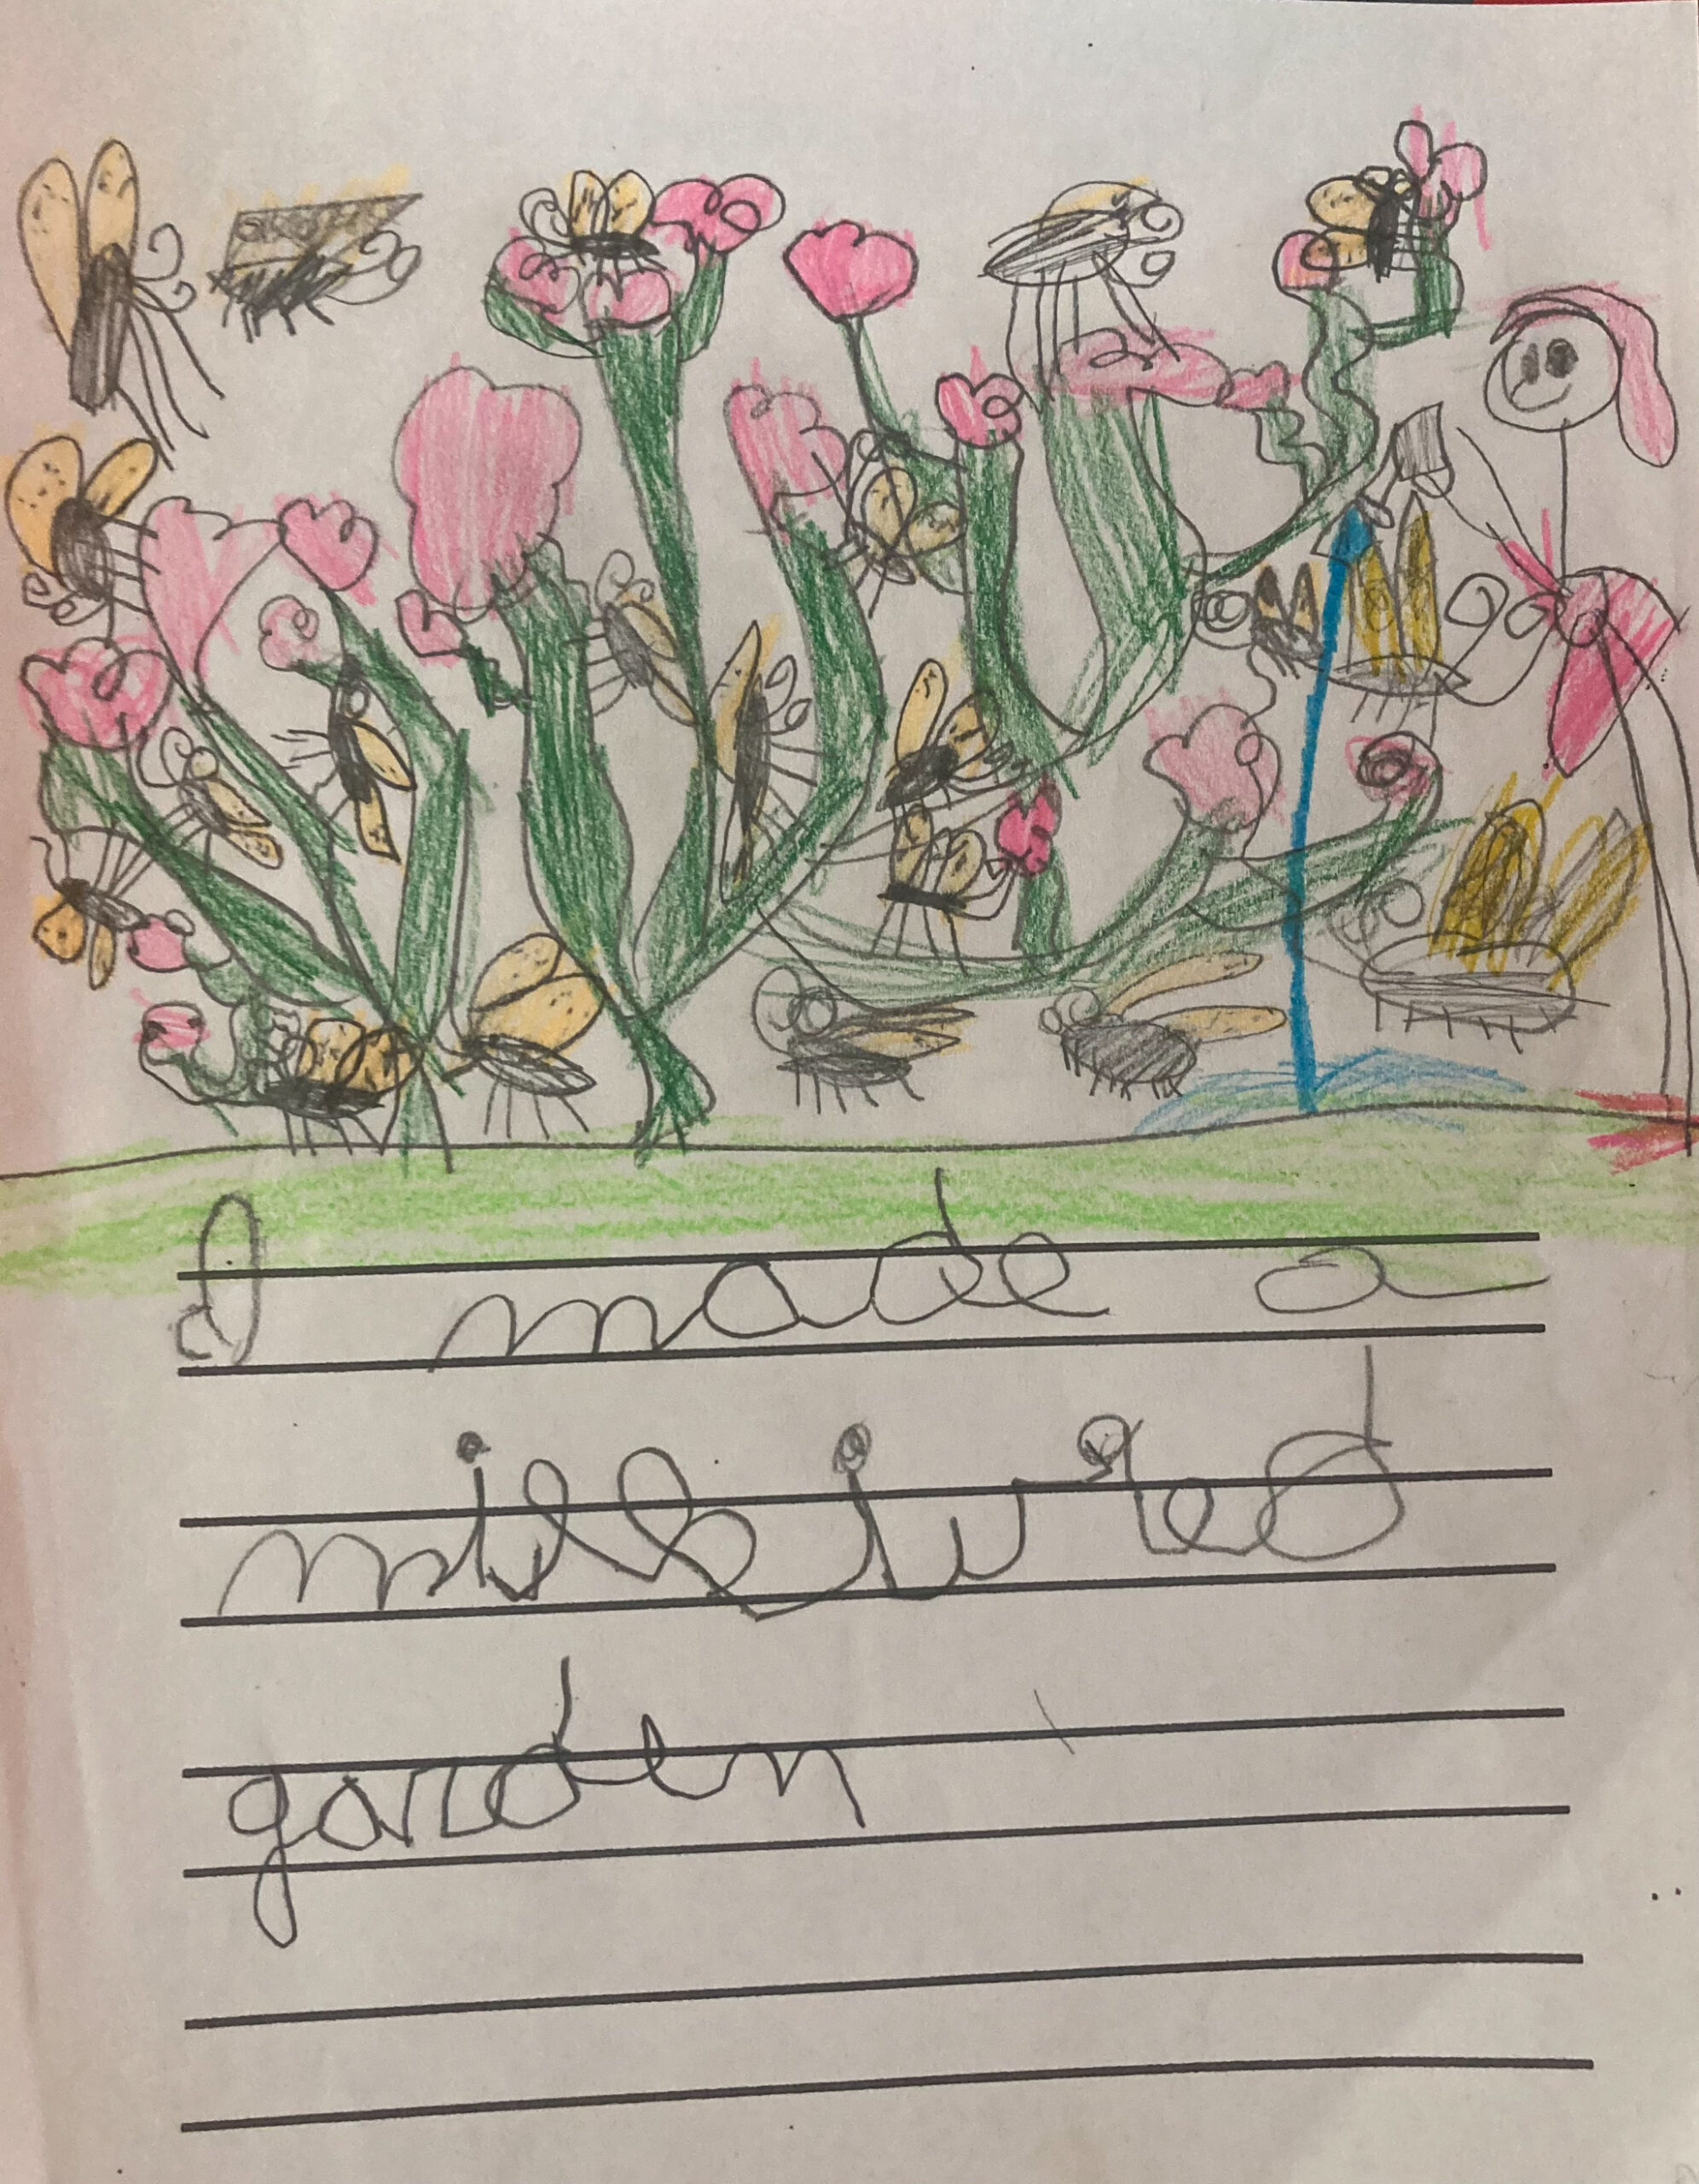 I made a
milkweed
garden